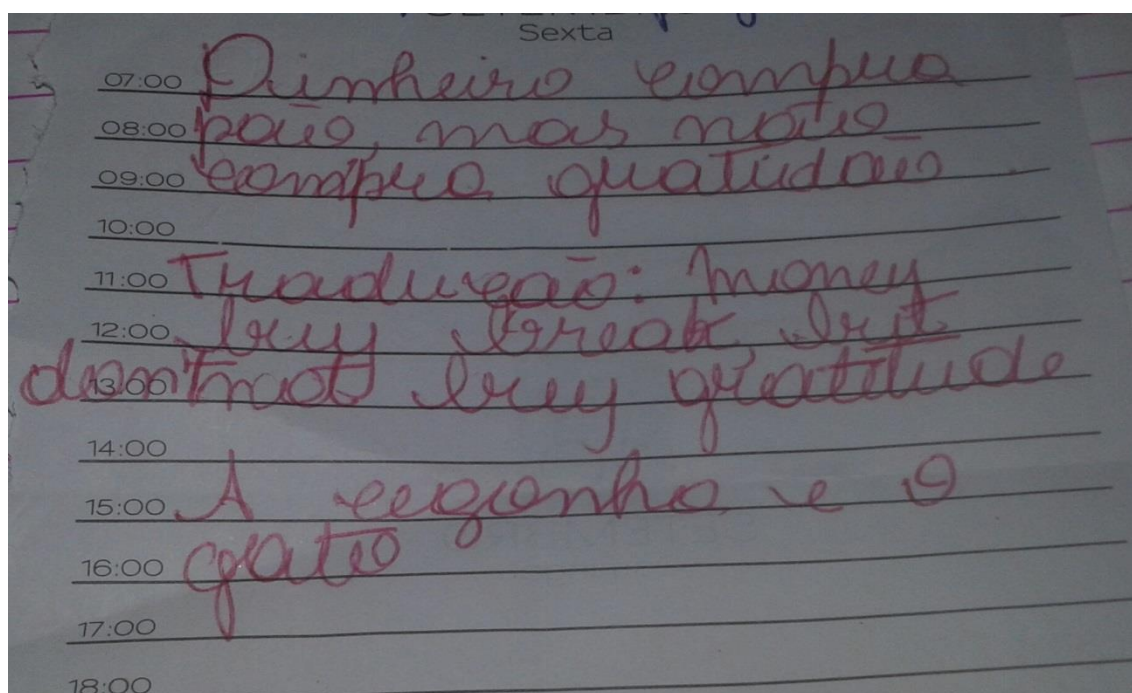 Sexta
07:00 Dinheiro compra
08:00 pão, mas não
09:00 compra gratidão
10:00
11:00 Tradução: money
12:00 buy break, but
13:00 buy gratitude
14:00
15:00 A cegonha e o
16:00 gato
17:00
18:00